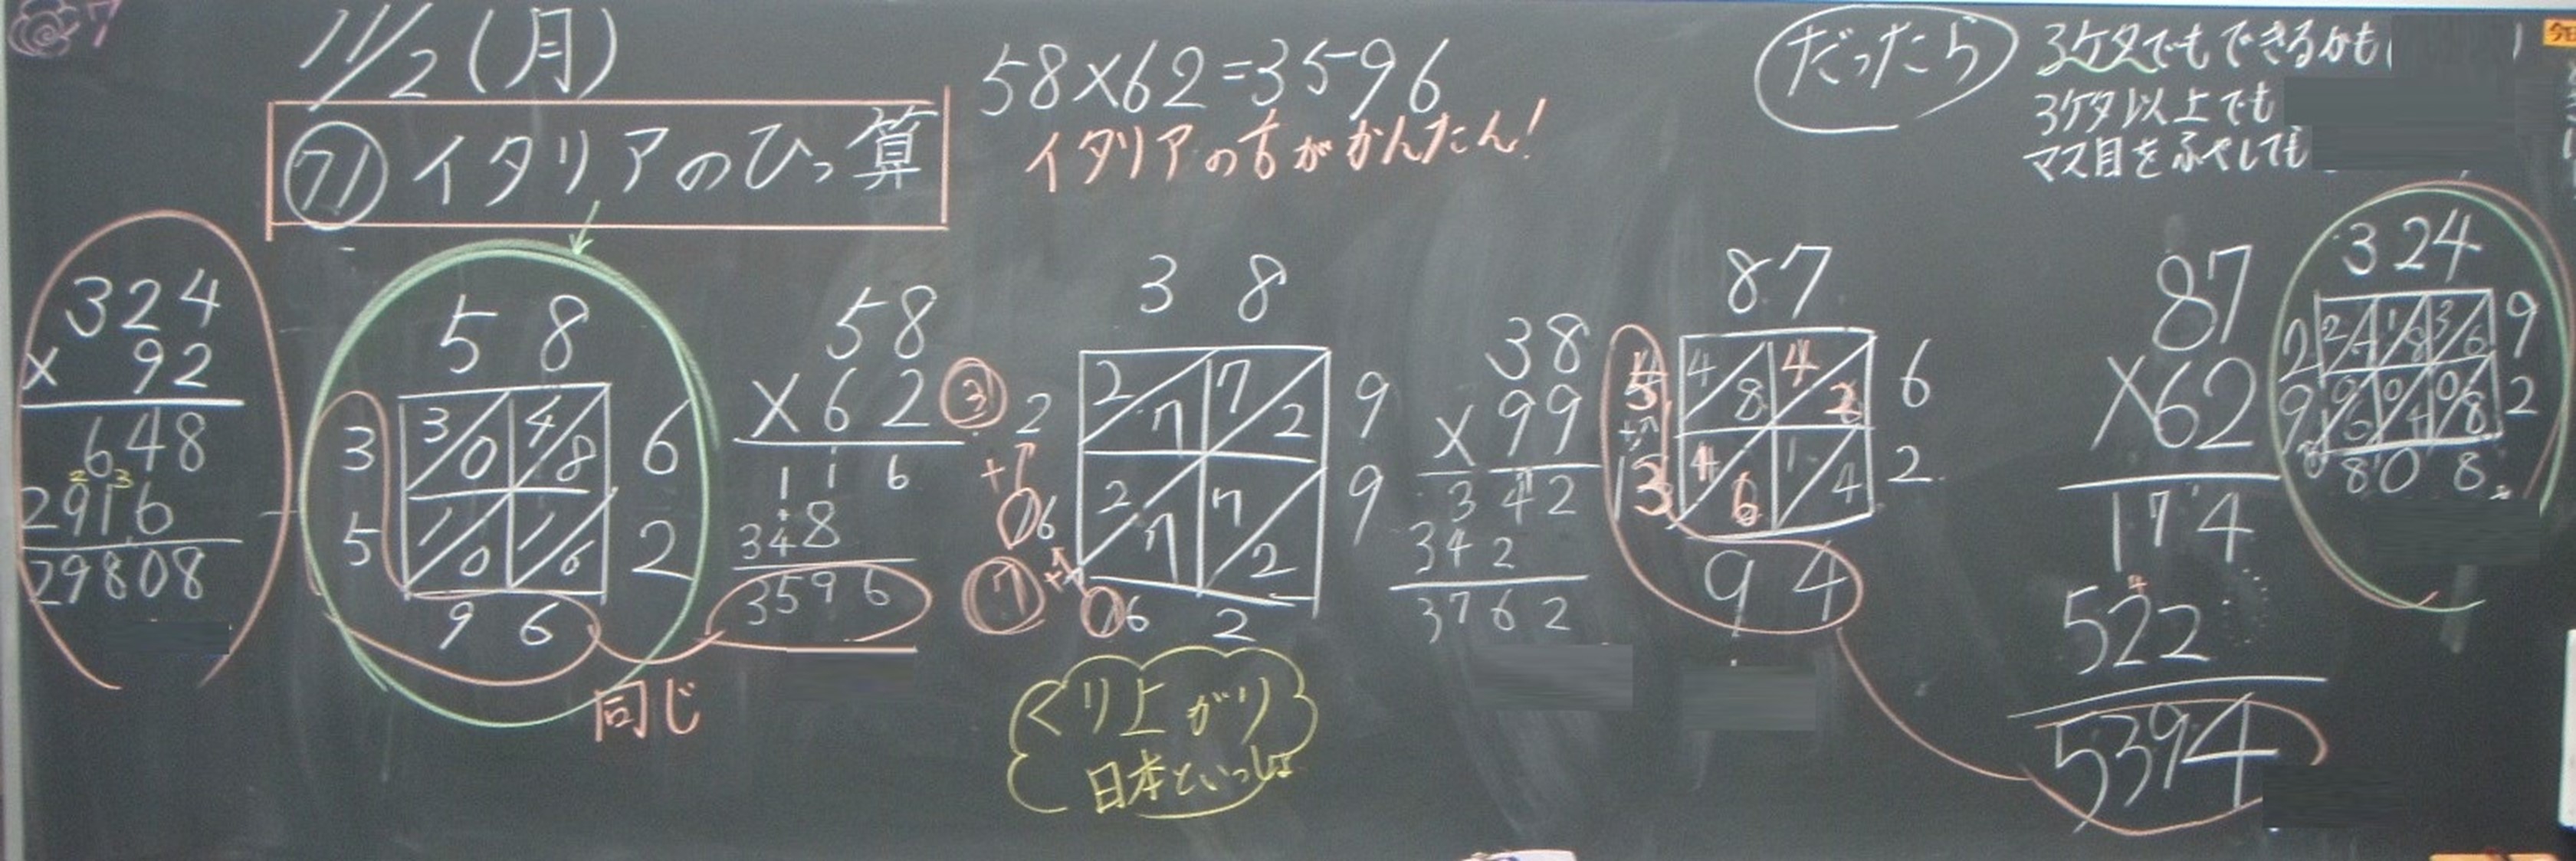 11/2(月)
㋆ イタリアのひっ算
58×62=3596
イタリアの方がかんたん!
だったら
3ケタでもできるかも
3ケタ以上でも
マス目をふやしても
324
× 92
648
2916
29808
5 8
3 3/0 4/8 6
5 1/0 1/6 2
9 6
同じ
58
×62
116
348
3596
3 8
③ 2 2/7 7/2 9
+1
⑦ 6 2/7 7/2 9
+1
6 2
くり上がり
日本といっしょ
38
×99
342
342
3762
87
5 4/8 4/2 6
+1
13 1/6 1/4 2
94
87
×62
174
522
5394
324
2 2/7 1/8 3/6 9
9 0/6 0/4 0/8 2
808